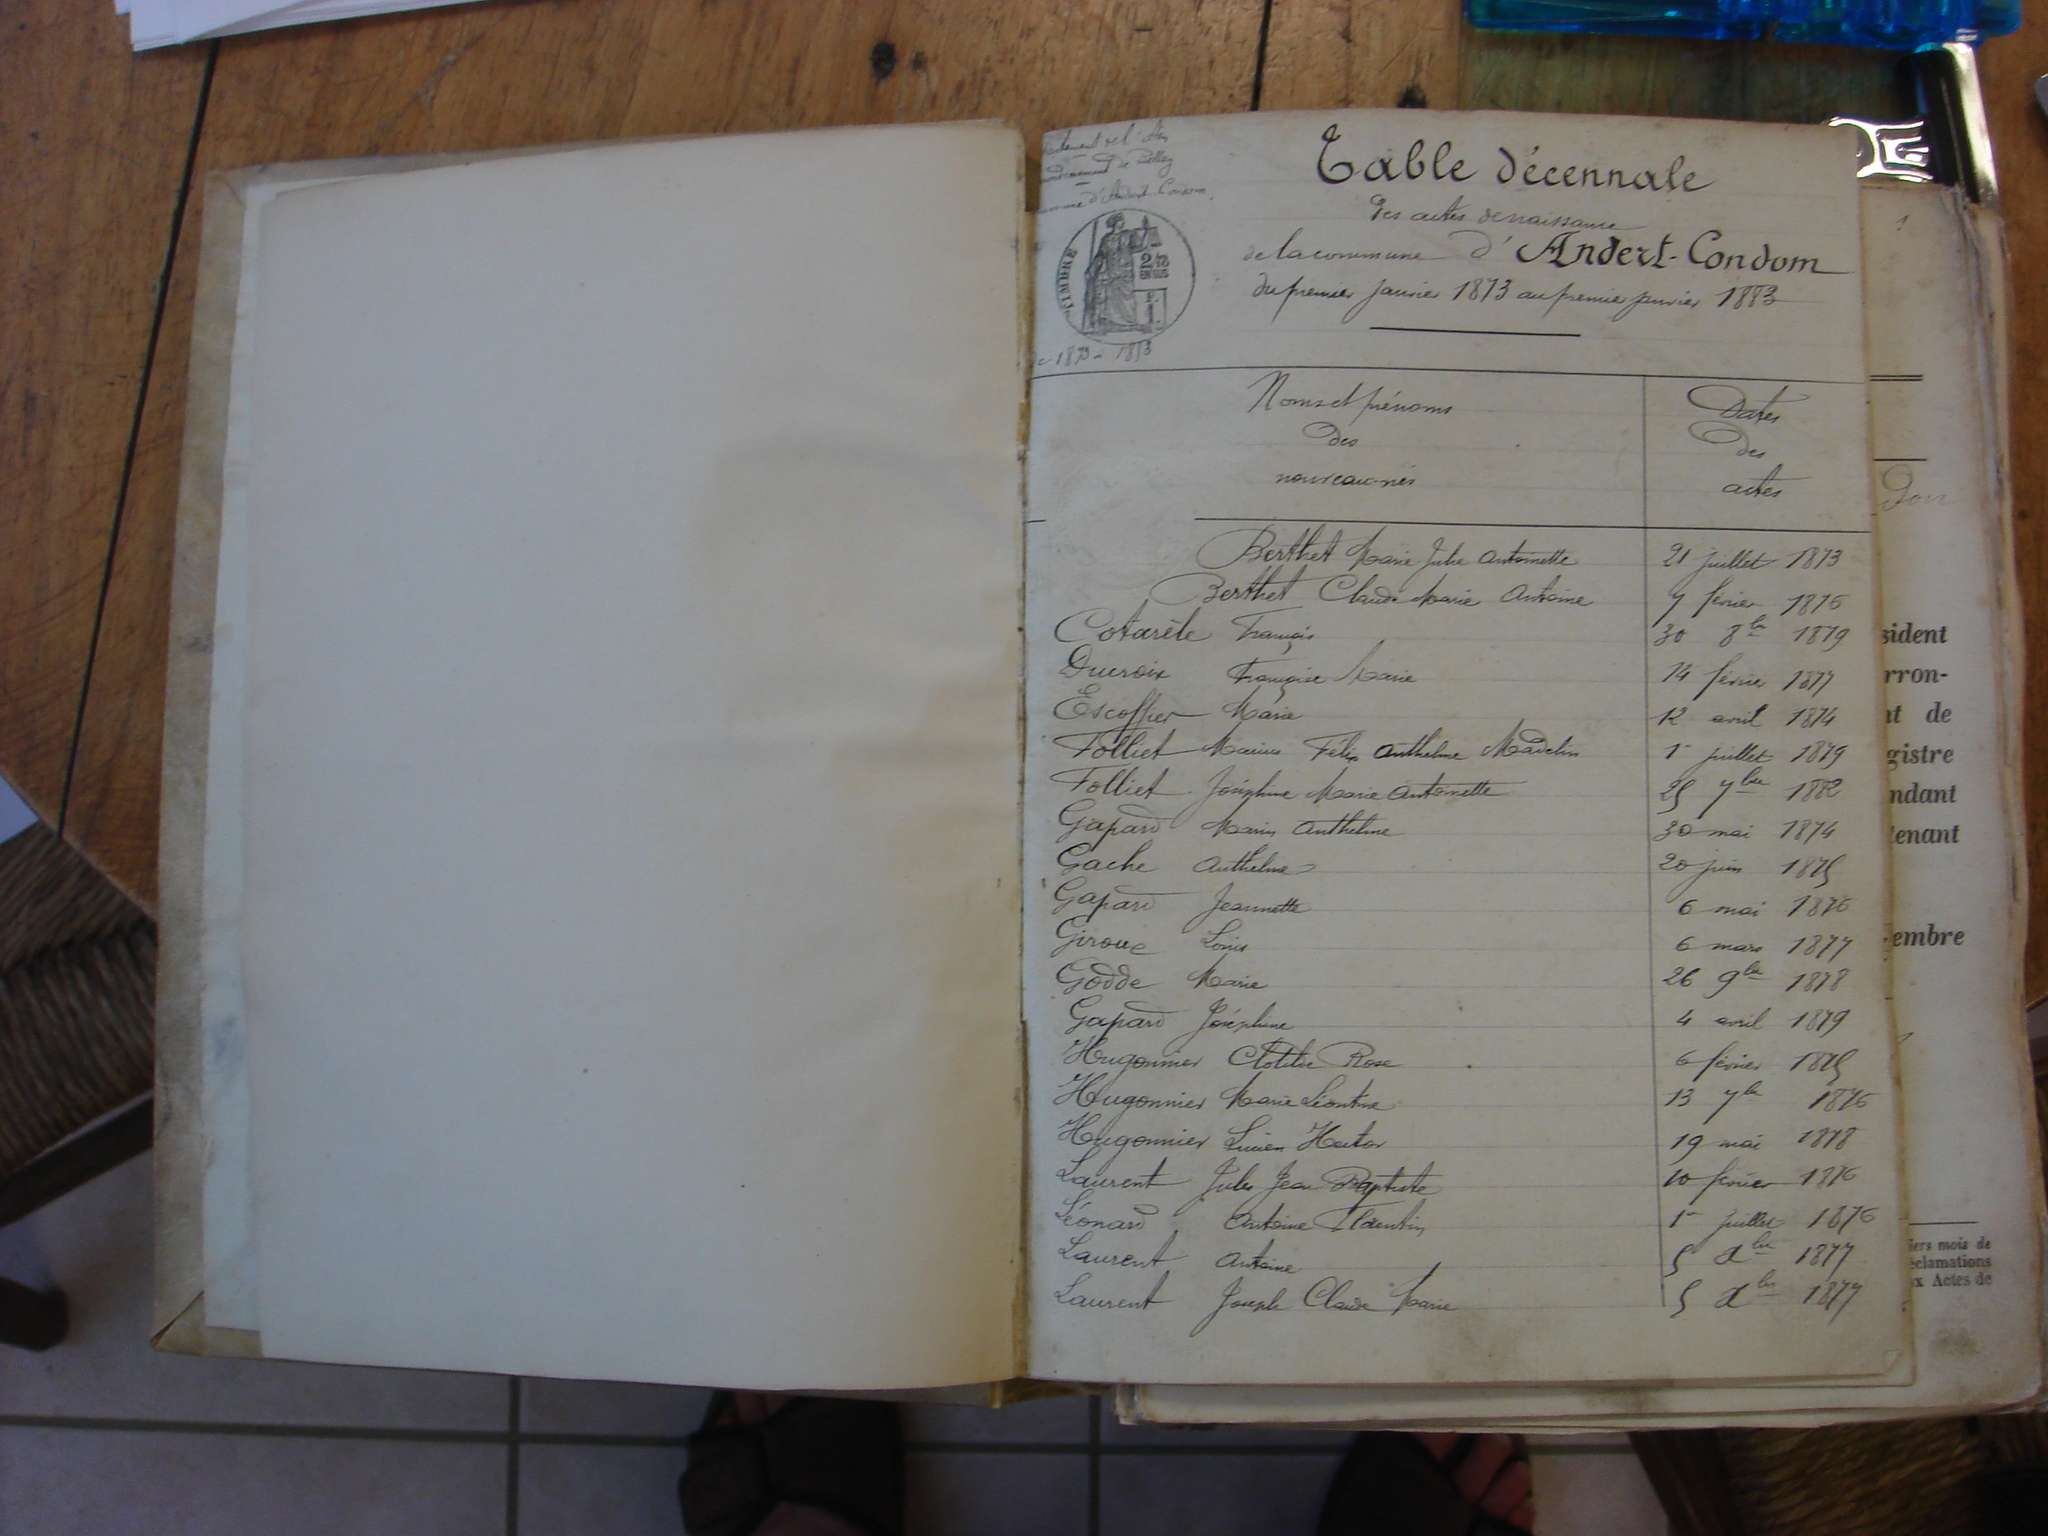 de l'Ain
de Belley
d'Andert-Condom
TIMBRE
2/10
EN SUS
1
1873 - 1883
Table décennale
des actes de naissance
de la commune d'Andert-Condom
du premier janvier 1873 au premier janvier 1883
Noms et prénoms
des
nouveau-nés
Dates
des
actes
Berthet Marie Julie Antoinette 21 juillet 1873
Berthet Claude Marie Antoine 7 février 1876
Cotarèle François 30 8bre 1879
Ducroix Françoise Marie 14 février 1877
Escoffier Marie 12 avril 1874
Folliet Marius Félix Anthelme Madelin 1r juillet 1879
Folliet Joséphine Marie Antoinette 25 7bre 1882
Gapard Marius Anthelme 30 mai 1874
Gache Anthelme 20 juin 1875
Gapard Jeannette 6 mai 1876
Giroux Louis 6 mars 1877
Godde Marie 26 9bre 1878
Gapard Joséphine 4 avril 1879
Hugonnier Clotilde Rose 6 février 1875
Hugonnier Marie Léontine 13 7bre 1876
Hugonnier Lucien Hector 19 mai 1878
Laurent Jules Jean Baptiste 10 février 1876
Léonard Antoine Florentin 1r juillet 1876
Laurent Antoine 5 Xbre 1877
Laurent Joseph Claude Marie 5 Xbre 1877
1
don
sident
rron-
nt de
gistre
ndant
tenant
embre
iers mois de
éclamations
x Actes de